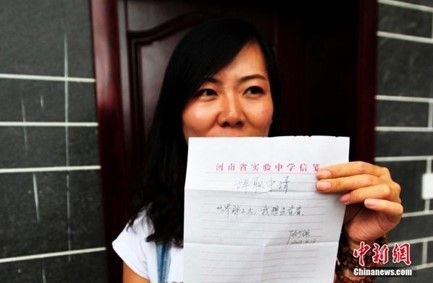 河南省实验中学信笺
辞职申请
世界那么大，我想去看看。
中新网
Chinanews.com